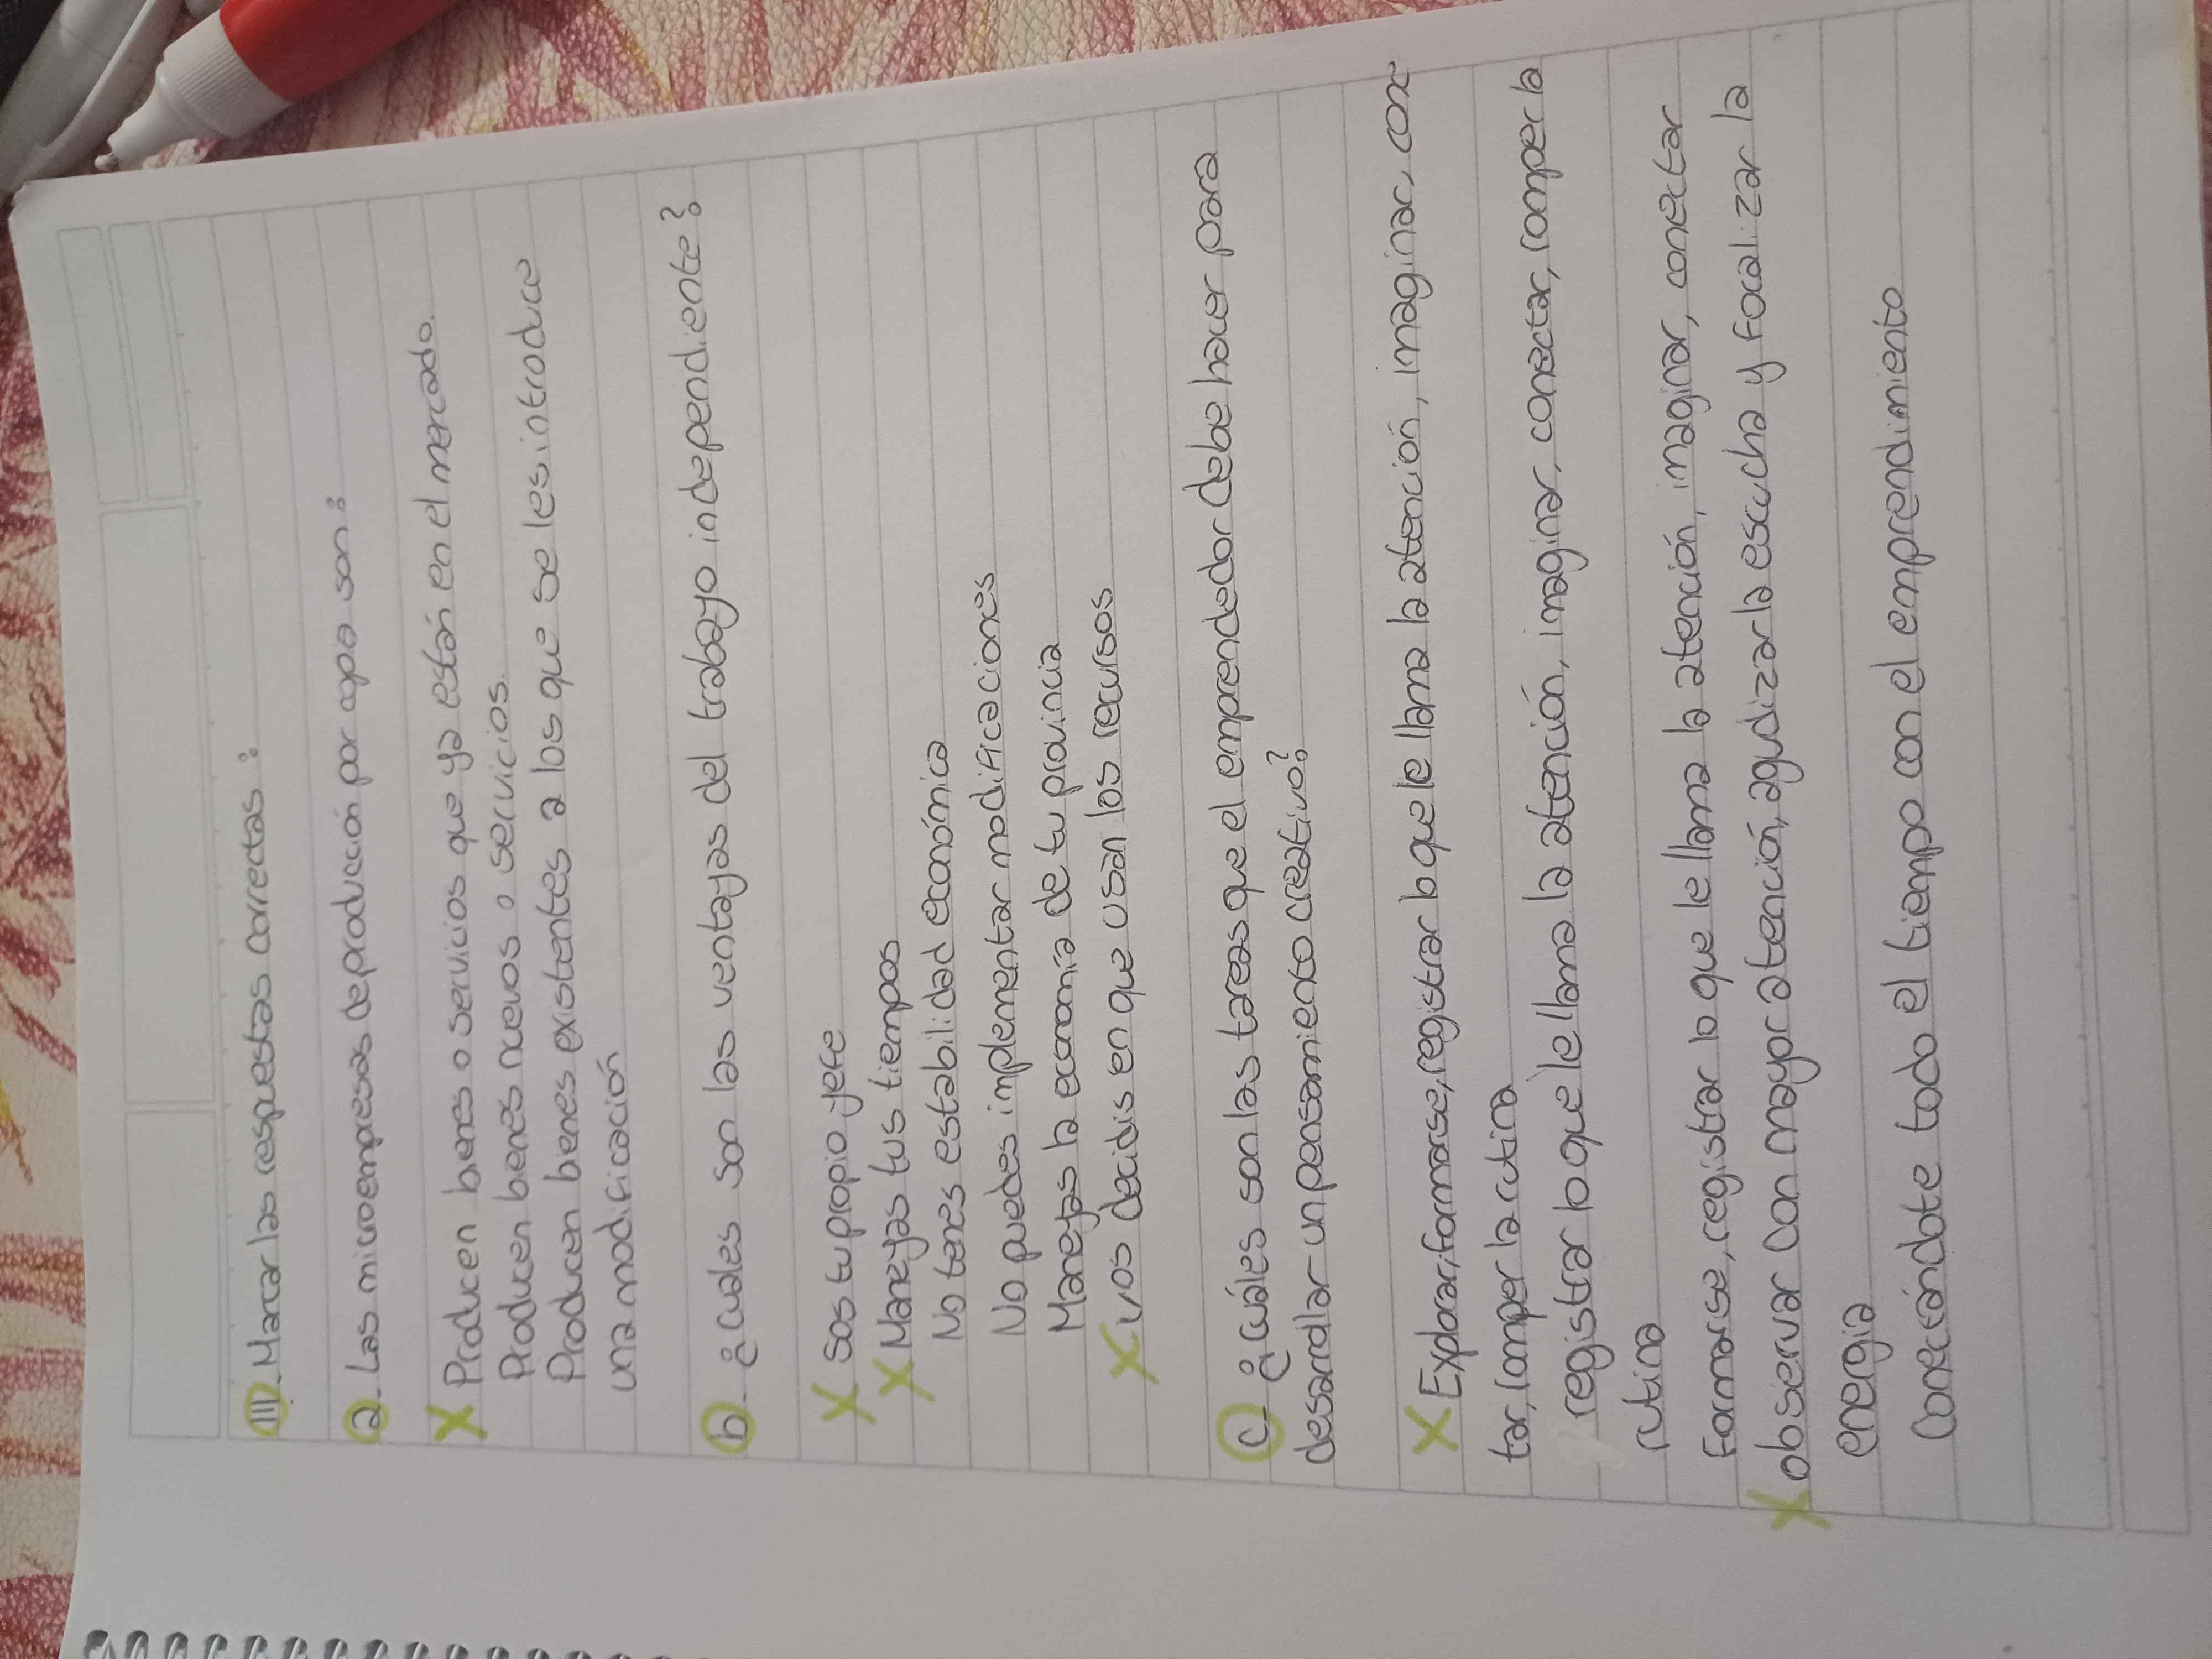 III - Marcar las respuestas correctas :
a - Las microempresas de producción por copia son :
X Producen bienes o servicios que ya están en el mercado.
Producen bienes nuevos o servicios.
Producen bienes existentes a los que se les introduce
una modificación
b - ¿Cuáles son las ventajas del trabajo independiente?
X Sos tu propio jefe
X Manejas tus tiempos
No tenes estabilidad económica
No puedes implementar modificaciones
Manejas la economia de tu provincia
X vos decidis en que usan los recursos
c - ¿Cuáles son las tareas que el emprendedor debe hacer para
desarrollar un pensamiento creativo?
X Explorar, formarse, registrar lo que le llama la atención, imaginar, conec
tar, romper la rutina
registrar lo que le llama la atención, imaginar, conectar, romper la
rutina
Formarse, registrar lo que le llama la atención, imaginar, conectar
X observar con mayor atención, agudizar la escucha y focalizar la
energia
Conectándote todo el tiempo con el emprendimiento